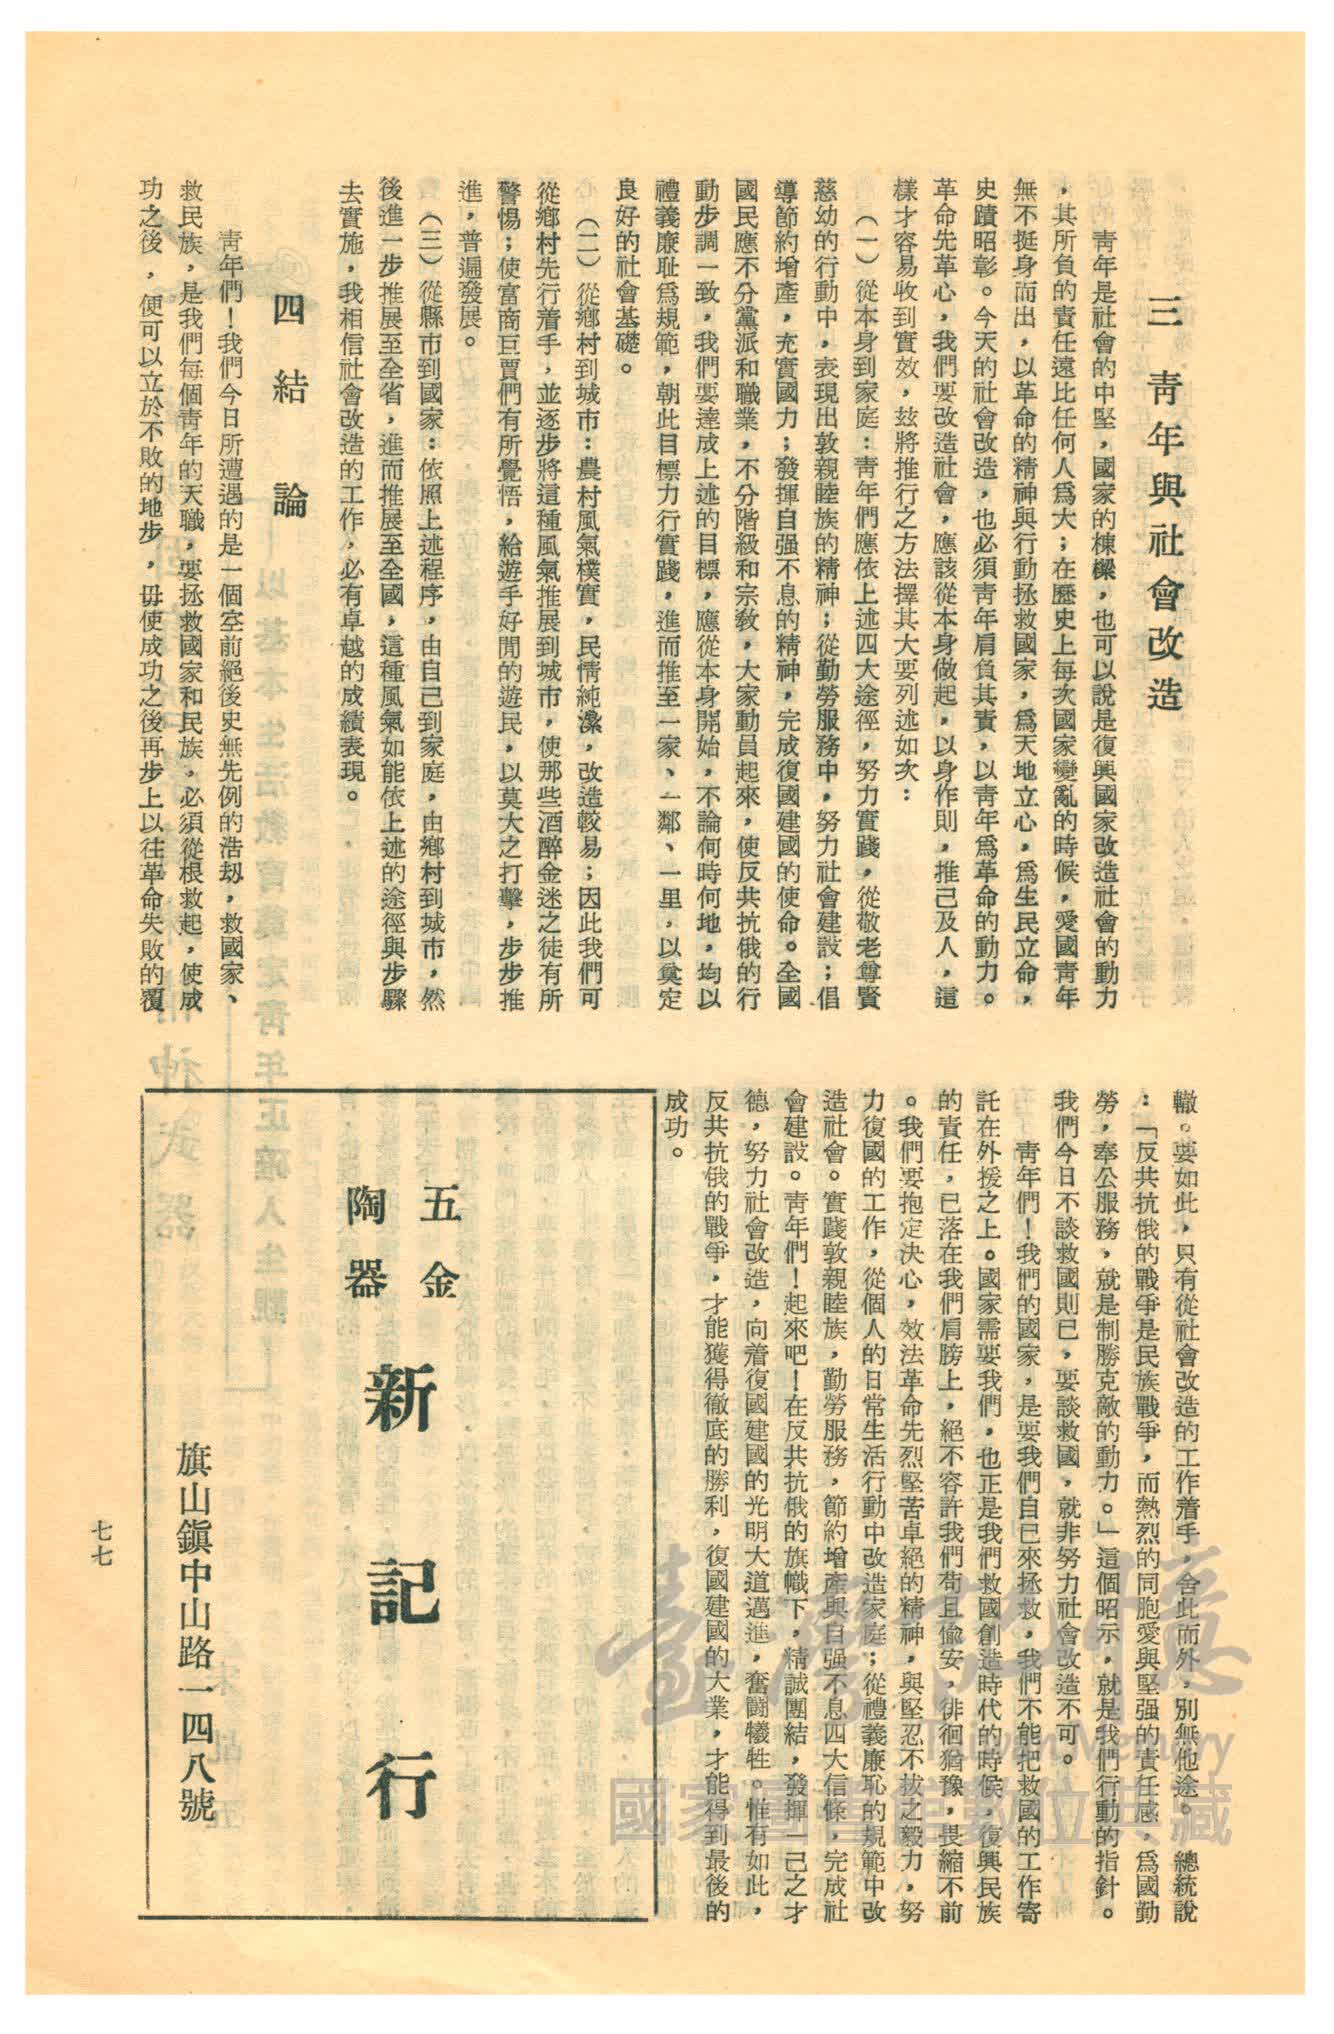 三　靑年與社會改造
靑年是社會的中堅，國家的棟樑，也可以說是復興國家改造社會的動力
，其所負的責任遠比任何人爲大；在歷史上每次國家變亂的時候，愛國靑年
無不挺身而出，以革命的精神與行動拯救國家，爲天地立心，爲生民立命，
史蹟昭彰。今天的社會改造，也必須靑年肩負其責，以靑年爲革命的動力。
革命先革心，我們要改造社會，應該從本身做起，以身作則，推己及人，這
樣才容易收到實效，玆將推行之方法擇其大要列述如次：
（一）從本身到家庭：靑年們應依上述四大途徑，努力實踐，從敬老尊賢
慈幼的行動中，表現出敦親睦族的精神；從勤勞服務中，努力社會建設；倡
導節約增產，充實國力；發揮自强不息的精神，完成復國建國的使命。全國
國民應不分黨派和職業，不分階級和宗敎，大家動員起來，使反共抗俄的行
動步調一致，我們要達成上述的目標，應從本身開始，不論何時何地，均以
禮義廉耻爲規範，朝此目標力行實踐，進而推至一家、一鄰、一里，以奠定
良好的社會基礎。
（二）從鄉村到城市：農村風氣樸實，民情純潔，改造較易；因此我們可
從鄉村先行着手，並逐步將這種風氣推展到城市，使那些酒醉金迷之徒有所
警惕；使富商巨賈們有所覺悟，給遊手好閒的遊民，以莫大之打擊，步步推
進，普遍發展。
（三）從縣市到國家：依照上述程序，由自己到家庭，由鄉村到城市，然
後進一步推展至全省，進而推展至全國，這種風氣如能依上述的途徑與步驟
去實施，我相信社會改造的工作，必有卓越的成績表現。
四　結　論
靑年們！我們今日所遭遇的是一個空前絕後史無先例的浩劫，救國家、
救民族，是我們每個靑年的天職，要拯救國家和民族，必須從根救起，使成
功之後，便可以立於不敗的地步，毋使成功之後再步上以往革命失敗的覆
轍。要如此，只有從社會改造的工作着手，舍此而外，別無他途。　總統說
：「反共抗俄的戰爭是民族戰爭，而熱烈的同胞愛與堅强的責任感，爲國勤
勞，奉公服務，就是制勝克敵的動力。」這個昭示，就是我們行動的指針。
我們今日不談救國則已，要談救國，就非努力社會改造不可。
靑年們！我們的國家，是要我們自己來拯救，我們不能把救國的工作寄
託在外援之上。國家需要我們，也正是我們救國創造時代的時候，復興民族
的責任，已落在我們肩膀上，絕不容許我們苟且偸安，徘徊猶豫，畏縮不前
。我們要抱定決心，效法革命先烈堅苦卓絕的精神，與堅忍不拔之毅力，努
力復國的工作，從個人的日常生活行動中改造家庭；從禮義廉恥的規範中改
造社會。實踐敦親睦族，勤勞服務，節約增產與自强不息四大信條，完成社
會建設。靑年們！起來吧！在反共抗俄的旗幟下，精誠團結，發揮一己之才
德，努力社會改造，向着復國建國的光明大道邁進，奮鬪犧牲。惟有如此，
反共抗俄的戰爭，才能獲得徹底的勝利，復國建國的大業，才能得到最後的
成功。
五金
陶器
新記行
旗山鎭中山路一四八號
七七
臺灣記憶
Taiwan Memory
國家圖書館數位典藏